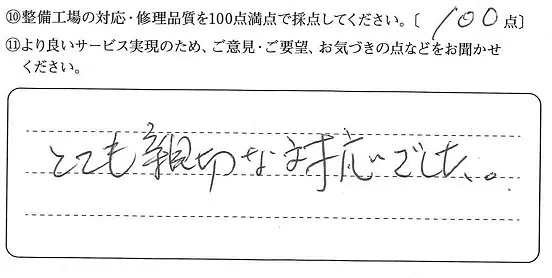 ⑩整備工場の対応・修理品質を100点満点で採点してください。〔 100 点〕
⑪より良いサービス実現のため、ご意見・ご要望、お気づきの点などをお聞かせ
ください。
とても親切な対応でした。